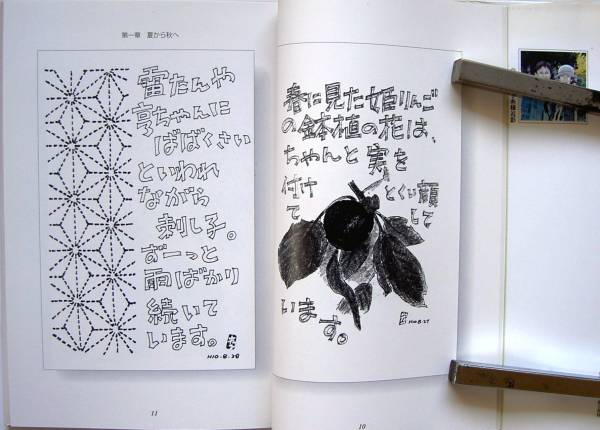 第一章　夏から秋へ
雷たんや
亨ちゃんに
ばばくさい
といわれ
ながら
刺し子。
ずーっと
雨ばかり
続いて
います。
H10-8-28
11
春に見た姫りんご
の鉢植の花は、
ちゃんと実を
付け
て
とくい顔
して
います。
H10-8-27
10